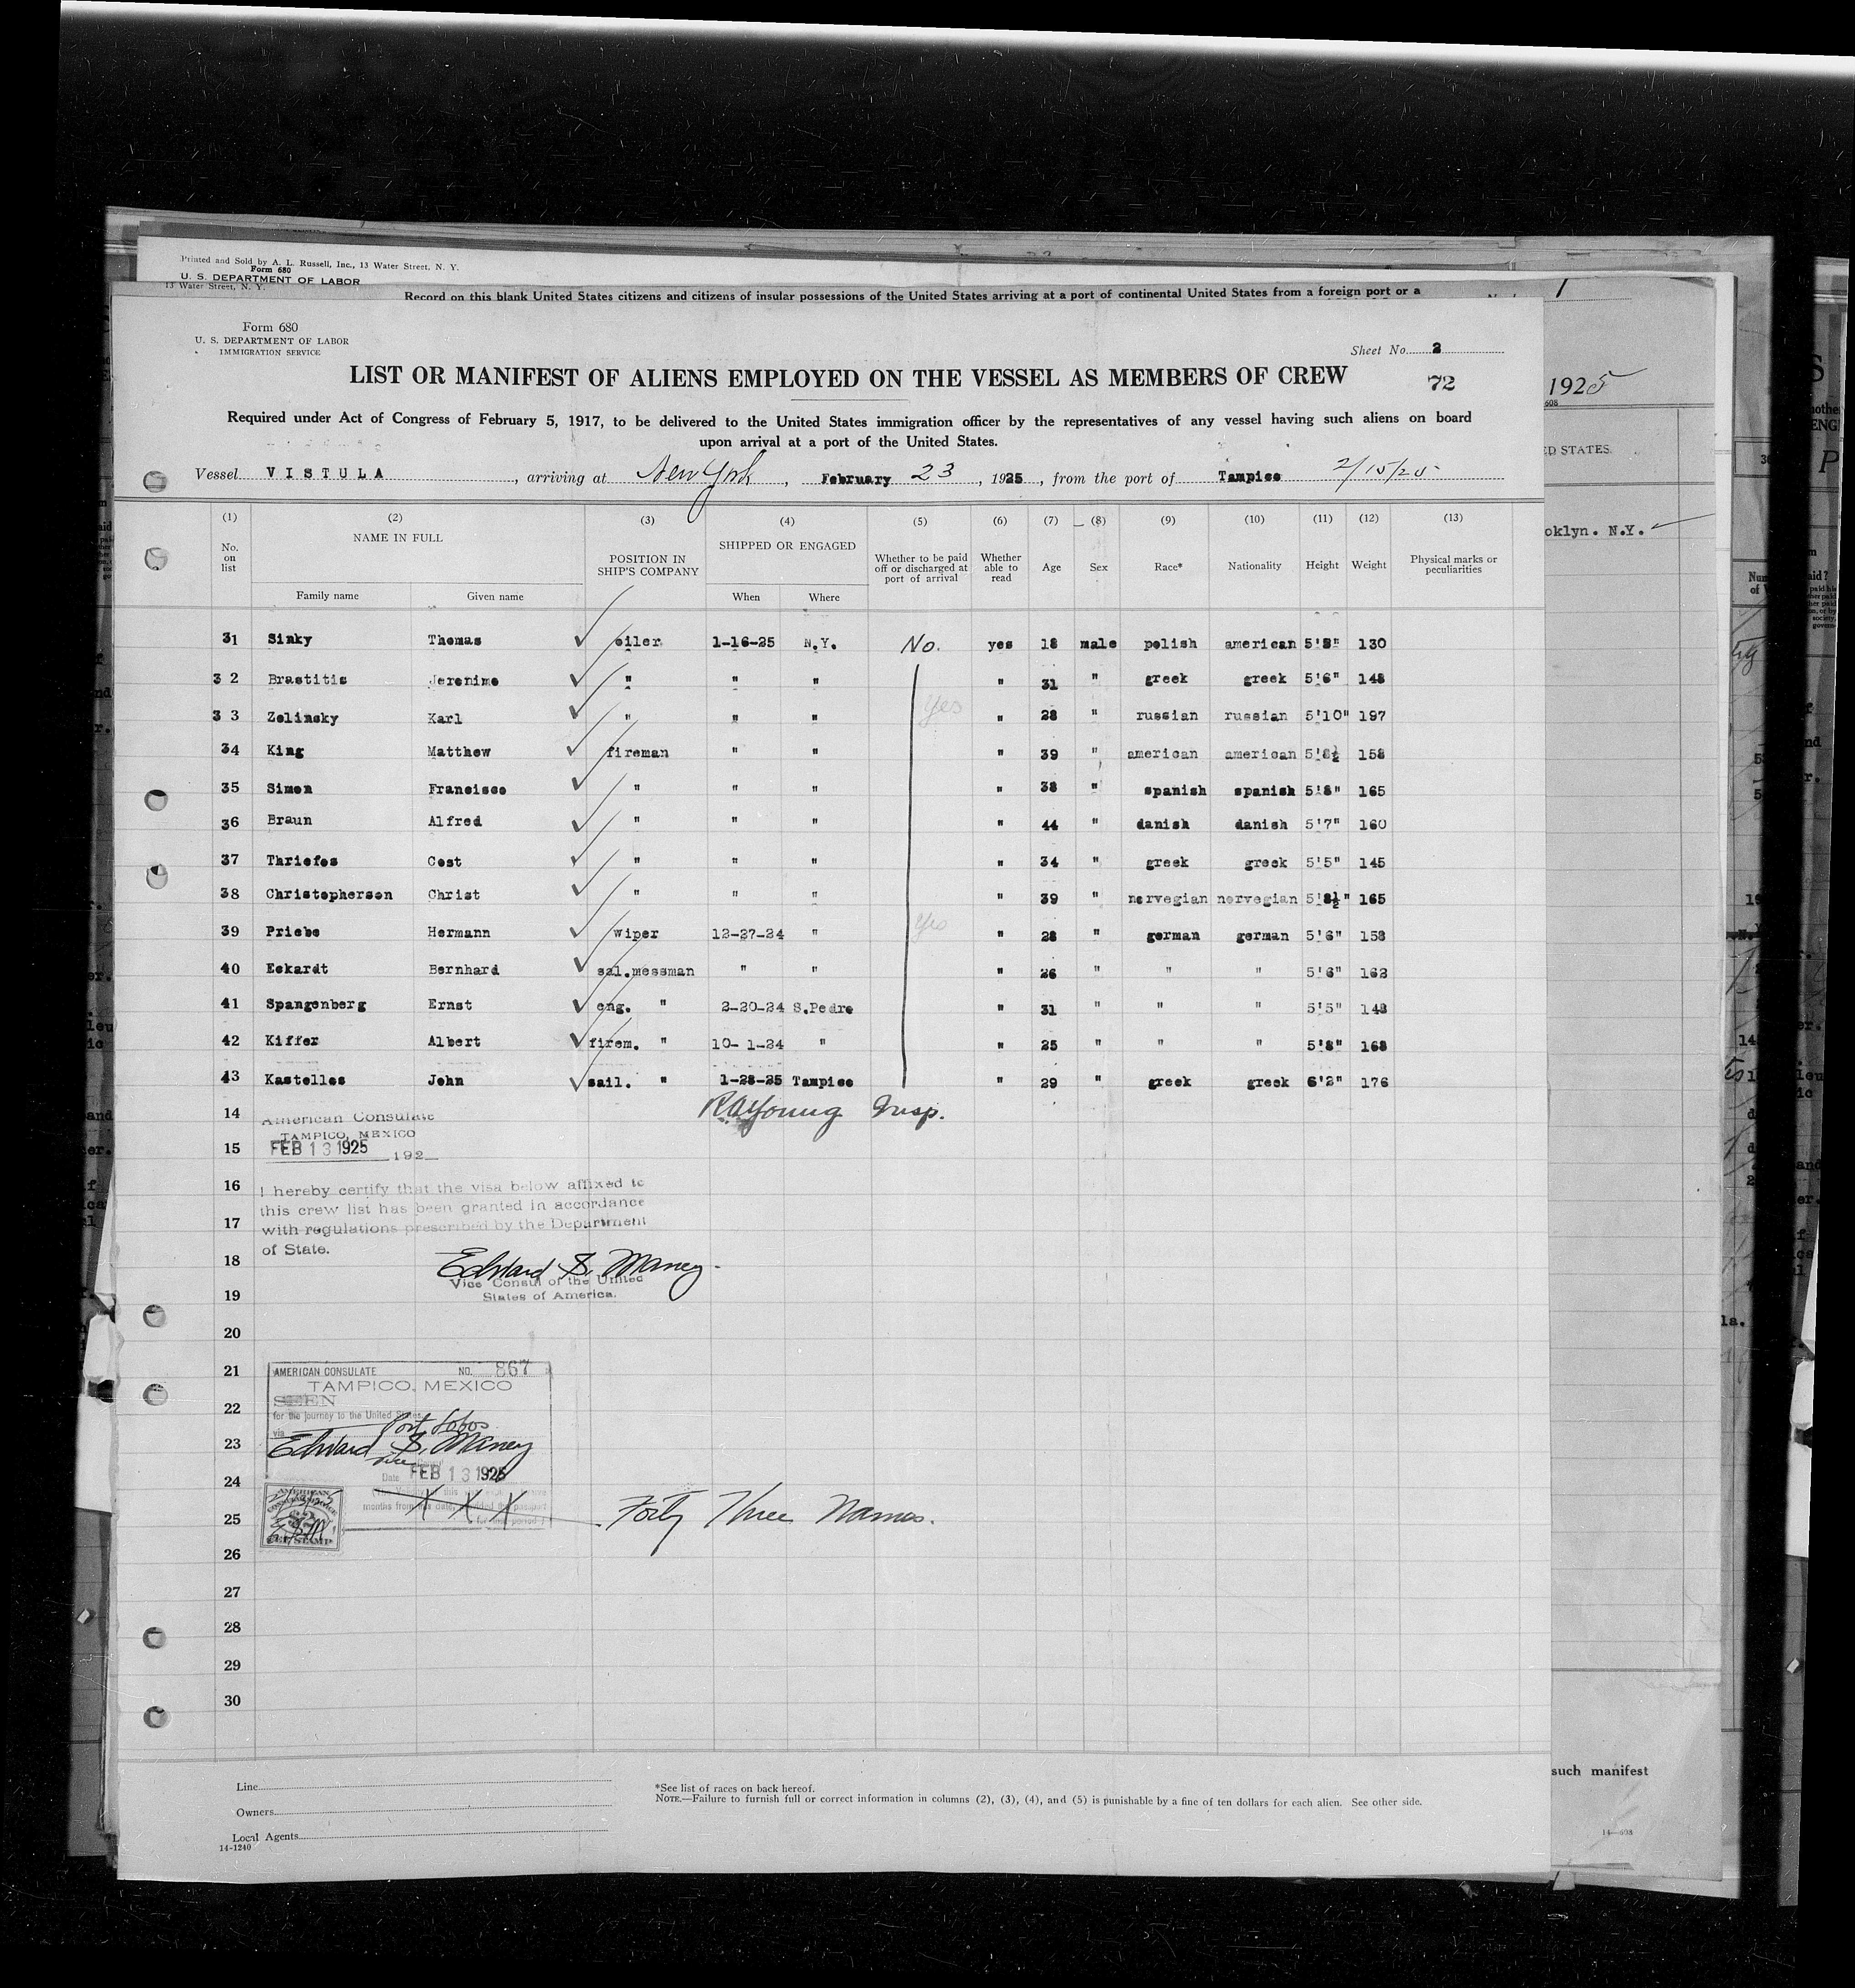 Printed and Sold by A. L. Russell, Inc., 13 Water Street, N. Y.
Form 680
U. S. DEPARTMENT OF LABOR
13 Water Street, N. Y.
Record on this blank United States citizens and citizens of insular possessions of the United States arriving at a port of continental United States from a foreign port or a
Form 680
U. S. DEPARTMENT OF LABOR
IMMIGRATION SERVICE
Sheet No. 2
LIST OR MANIFEST OF ALIENS EMPLOYED ON THE VESSEL AS MEMBERS OF CREW
72
1925
Required under Act of Congress of February 5, 1917, to be delivered to the United States immigration officer by the representatives of any vessel having such aliens on board
upon arrival at a port of the United States.
ED STATES.
Vessel VISTULA, arriving at New York, February 23, 1925, from the port of Tampico 2/15/25
oklyn. N.Y.
(1) (2) (3) (4) (5) (6) (7) (8) (9) (10) (11) (12) (13)
No. on list NAME IN FULL POSITION IN SHIP'S COMPANY SHIPPED OR ENGAGED Whether to be paid off or discharged at port of arrival Whether able to read Age Sex Race* Nationality Height Weight Physical marks or peculiarities
Family name Given name When Where
31 Sinky Thomas oiler 1-16-25 N.Y. No. yes 18 male polish american 5'8" 130
32 Brastitis Jeronimo " " " " 31 " greek greek 5'6" 148
33 Zelinsky Karl " " " yes " 28 " russian russian 5'10" 197
34 King Matthew fireman " " " 39 " american american 5'8½ 158
35 Simon Francisco " " " " 38 " spanish spanish 5'8" 165
36 Braun Alfred " " " " 44 " danish danish 5'7" 160
37 Thriefos Cost " " " " 34 " greek greek 5'5" 145
38 Christopherson Christ " " " " 39 " norvegian norvegian 5'8½" 165
39 Priebe Hermann wiper 12-27-24 " yes " 28 " german german 5'6" 158
40 Eckardt Bernhard sal.messman " " " 26 " " " 5'6" 162
41 Spangenberg Ernst eng. " 2-20-24 S.Pedro " 31 " " " 5'5" 148
42 Kiffer Albert firem. " 10- 1-24 " " 25 " " " 5'8" 168
43 Kastelles John sail. " 1-28-25 Tampico " 29 " greek greek 6'2" 176
14 American Consulate
RA Young Insp.
TAMPICO, MEXICO
15 FEB 13 1925 192
16 I hereby certify that the visa below affixed to
this crew list has been granted in accordance
17 with regulations prescribed by the Department
of State.
18 Edward S. Maney
Vice Consul of the United
19 States of America.
20
21 AMERICAN CONSULATE NO. 867
TAMPICO, MEXICO
22 SEEN
for the journey to the United States
via Port Lobos
23 Edward S. Maney
Vice
24 Date FEB 13 1925
months from this date, provided the passport
X X X
25 Forty Three Names.
FEE STAMP
26
27
28
29
30
such manifest
Line
Owners
Local Agents
14-1240
*See list of races on back hereof.
NOTE.—Failure to furnish full or correct information in columns (2), (3), (4), and (5) is punishable by a fine of ten dollars for each alien. See other side.